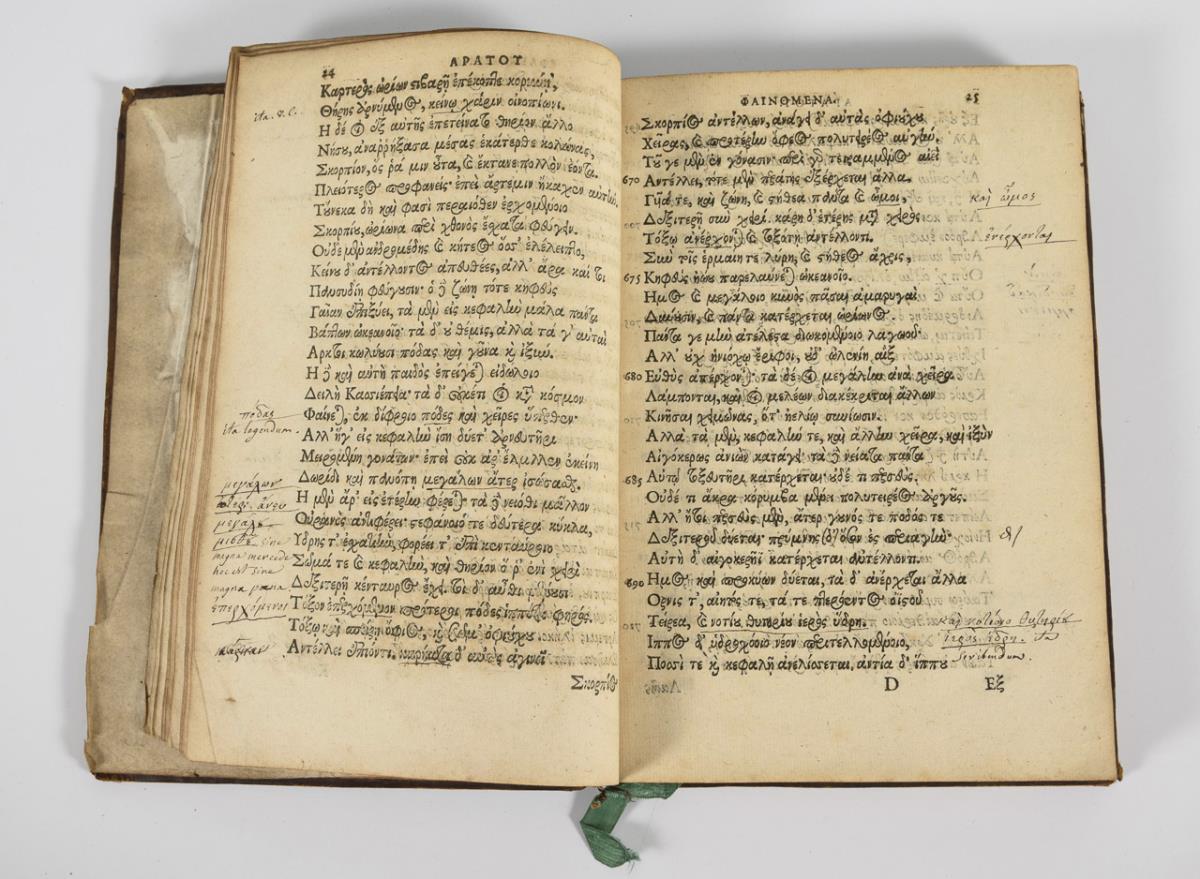 24
ΑΡΑΤΟΥ
ita v. c.
Καρτερὸς ὠρίων στιβαρῇ ἐπέκοπτε κορύνῃ,
Θήρης ἀρνύμενος, κείνῳ χάριν οἰνοπίωνι.
Η δέ οἱ ἐξ αὐτῆς ἐπετείνατο θηρίον ἄλλο
Νήσου, ἀναῤῥήξασα μέσας ἑκάτερθε κολώνας,
Σκορπίον, ὅς ῥά μιν οὖτα, καὶ ἔκτανε πολλὸν ἐόντα.
Πλειότερος προφανείς· ἐπεὶ ἄρτεμιν ἤκαχεν αὐτήν.
Τοὔνεκα δὴ καὶ φασὶ περαιόθεν ἐρχομένοιο
Σκορπίου, ὠρίωνα περὶ χθονὸς ἔσχατα φεύγειν.
Οὐδὲ μὲν ἀνδρομέδης καὶ κήτεος ὅσσ' ἐλέλειπτο,
Κείνου δ' ἀντέλλοντος ἀπευθέες, ἀλλ' ἄρα καὶ τοὶ
Πανσυδίῃ φεύγουσιν· ὁ δὲ ζώνῃ τότε κηφεὺς
Γαῖαν ἐπιξύει, τὰ μὲν εἰς κεφαλὴν μάλα πάντα
Βάπτων ὠκεανοῖο· τὰ δ' οὐ θέμις, ἀλλὰ τά γ' αὐταὶ
Αρκτοι κωλύουσι πόδας καὶ γοῦνα καὶ ἰξύν.
Η δὲ καὶ αὐτὴ παιδὸς ἐπείγεται εἰδώλοιο
Δειλὴ Κασσιέπεια· τὰ δ' οὐκέτι οἱ κατὰ κόσμον
Φαίνεται, ἐκ δίφροιο πόδες καὶ χεῖρες ὕπερθεν·
πόδας
ita legendum.
Αλλ' ἥγ' εἰς κεφαλὴν ἴση δύετ' ἀρνευτῆρι
Μειρομένη γονάτων· ἐπεὶ οὐκ ἄρ' ἔμελλεν ἐκείνη
Δωρίδι καὶ πανόπῃ μεγάλων ἄτερ ἰσώσασθαι.
μεγάλων
μεγαλ
μισθ sine
magna mercede
hoc est sine
magna poena
Η μὲν ἄρ' εἰς ἑτέρην φέρεται· τὰ δὲ νειόθι μᾶλλον
Οὐρανὸς ἀντιφέρει· στεφάνοιό τε δεύτερα κύκλα,
Υδρης τ' ἐσχατιήν, φορέει τ' ἐπὶ κενταύροιο
Σῶμά τε καὶ κεφαλήν, καὶ θηρίον ὅ ῥ' ἐνὶ χειρὶ
Δεξιτερῇ κένταυρος ἔχει. τοὶ δ' αὖθι μένουσι
ἐπερχόμενοι
Τόξον ἐπερχόμενον πρότεροι πόδες ἱππότα φηρός.
Τόξῳ καὶ σπείρη ὄφιος, καὶ σῶμ' ὀφιούχου
Αντέλλει ἐπιόντι. καρήατα δ' αὐτὸς ἀγινεῖ
Σκορπίος
ΦΑΙΝΟΜΕΝΑ.
25
Σκορπίος ἀντέλλων, ἀνάγει δ' αὐτὰς ὀφιούχου
Χεῖρας, καὶ προτέρην ὄφεος πολυτειρέος αὐγήν.
Τοῦ γε μὲν ἐν γόνασιν· περὶ γὰρ τετραμμένος αἰεὶ
670 Αντέλλει, τότε μὲν περάτης ἐξέρχεται ἄλλα.
Γυῖά τε, καὶ ζώνη, καὶ στήθεα πάντα καὶ ὦμοι,
καὶ ὦμος
Δεξιτερῇ σὺν χειρί. κάρη δ' ἑτέρης μετὰ χειρὸς
Τόξῳ ἀνέρχονται καὶ τοξότῃ ἀντέλλοντι.
ἀνέρχονται
Σὺν τοῖς ἑρμαίη τε λύρη, καὶ στήθεος ἄχρις,
675 Κηφεὺς ἠῴου παρελαύνεται ὠκεανοῖο.
Ημος καὶ μεγάλοιο κυνὸς πᾶσαι ἀμαρυγαὶ
Δύνουσιν, καὶ πάντα κατέρχεται ὠρίωνος.
Πάντα γε μὴν ἀτέλεστα διωκομένοιο λαγωοῦ·
Αλλ' οὐχ ἡνιόχῳ ἔριφοι, οὐδ' ὠλενίη αἲξ
680 Εὐθὺς ἀπέρχονται· τὰ δέ οἱ μεγάλην ἀνὰ χεῖρα
Λάμπονται, καί οἱ μελέων διακέκριται ἄλλων
Κινῆσαι χειμῶνας, ὅτ' ἠελίῳ συνίωσιν.
Αλλὰ τὰ μὲν, κεφαλήν τε, καὶ ἄλλην χεῖρα, καὶ ἰξὺν
Αἰγόκερως ἀνιὼν κατάγει· τὰ δὲ νείατα πάντα
685 Αὐτῷ τοξευτῆρι κατέρχεται· οὐδέ τι περσεὺς.
Οὐδέ τι ἄκρα κόρυμβα μένει πολυτειρέος ἀργοῦς.
Αλλ' ἤτοι περσεὺς μὲν, ἄτερ γουνός τε ποδός τε
Δεξιτεροῦ δύεται· πρύμνης δ' ὅσον ἐς περιαγὴν·
δ/
Αὐτὴ δ' αἰγοκερῆι κατέρχεται ἀντέλλοντι.
690 Ημος καὶ προκύων δύεται, τὰ δ' ἀνέρχεται ἄλλα
Ορνις τ', αἰητός τε, τά τε πτερόεντος ὀϊστοῦ
Τείρεα, καὶ νοτίου θυτηρίου ἱερὸς ἕδρη.
καὶ νοτίοιο θυτηρίου
ἱερὸς ἕδρη. ita
scribendum.
Ιππος δ' ὑδροχόοιο νέον περιτελλομένοιο,
Ποσσί τε καὶ κεφαλῇ ἀνελίσσεται, ἀντία δ' ἵππου
D
Εξ